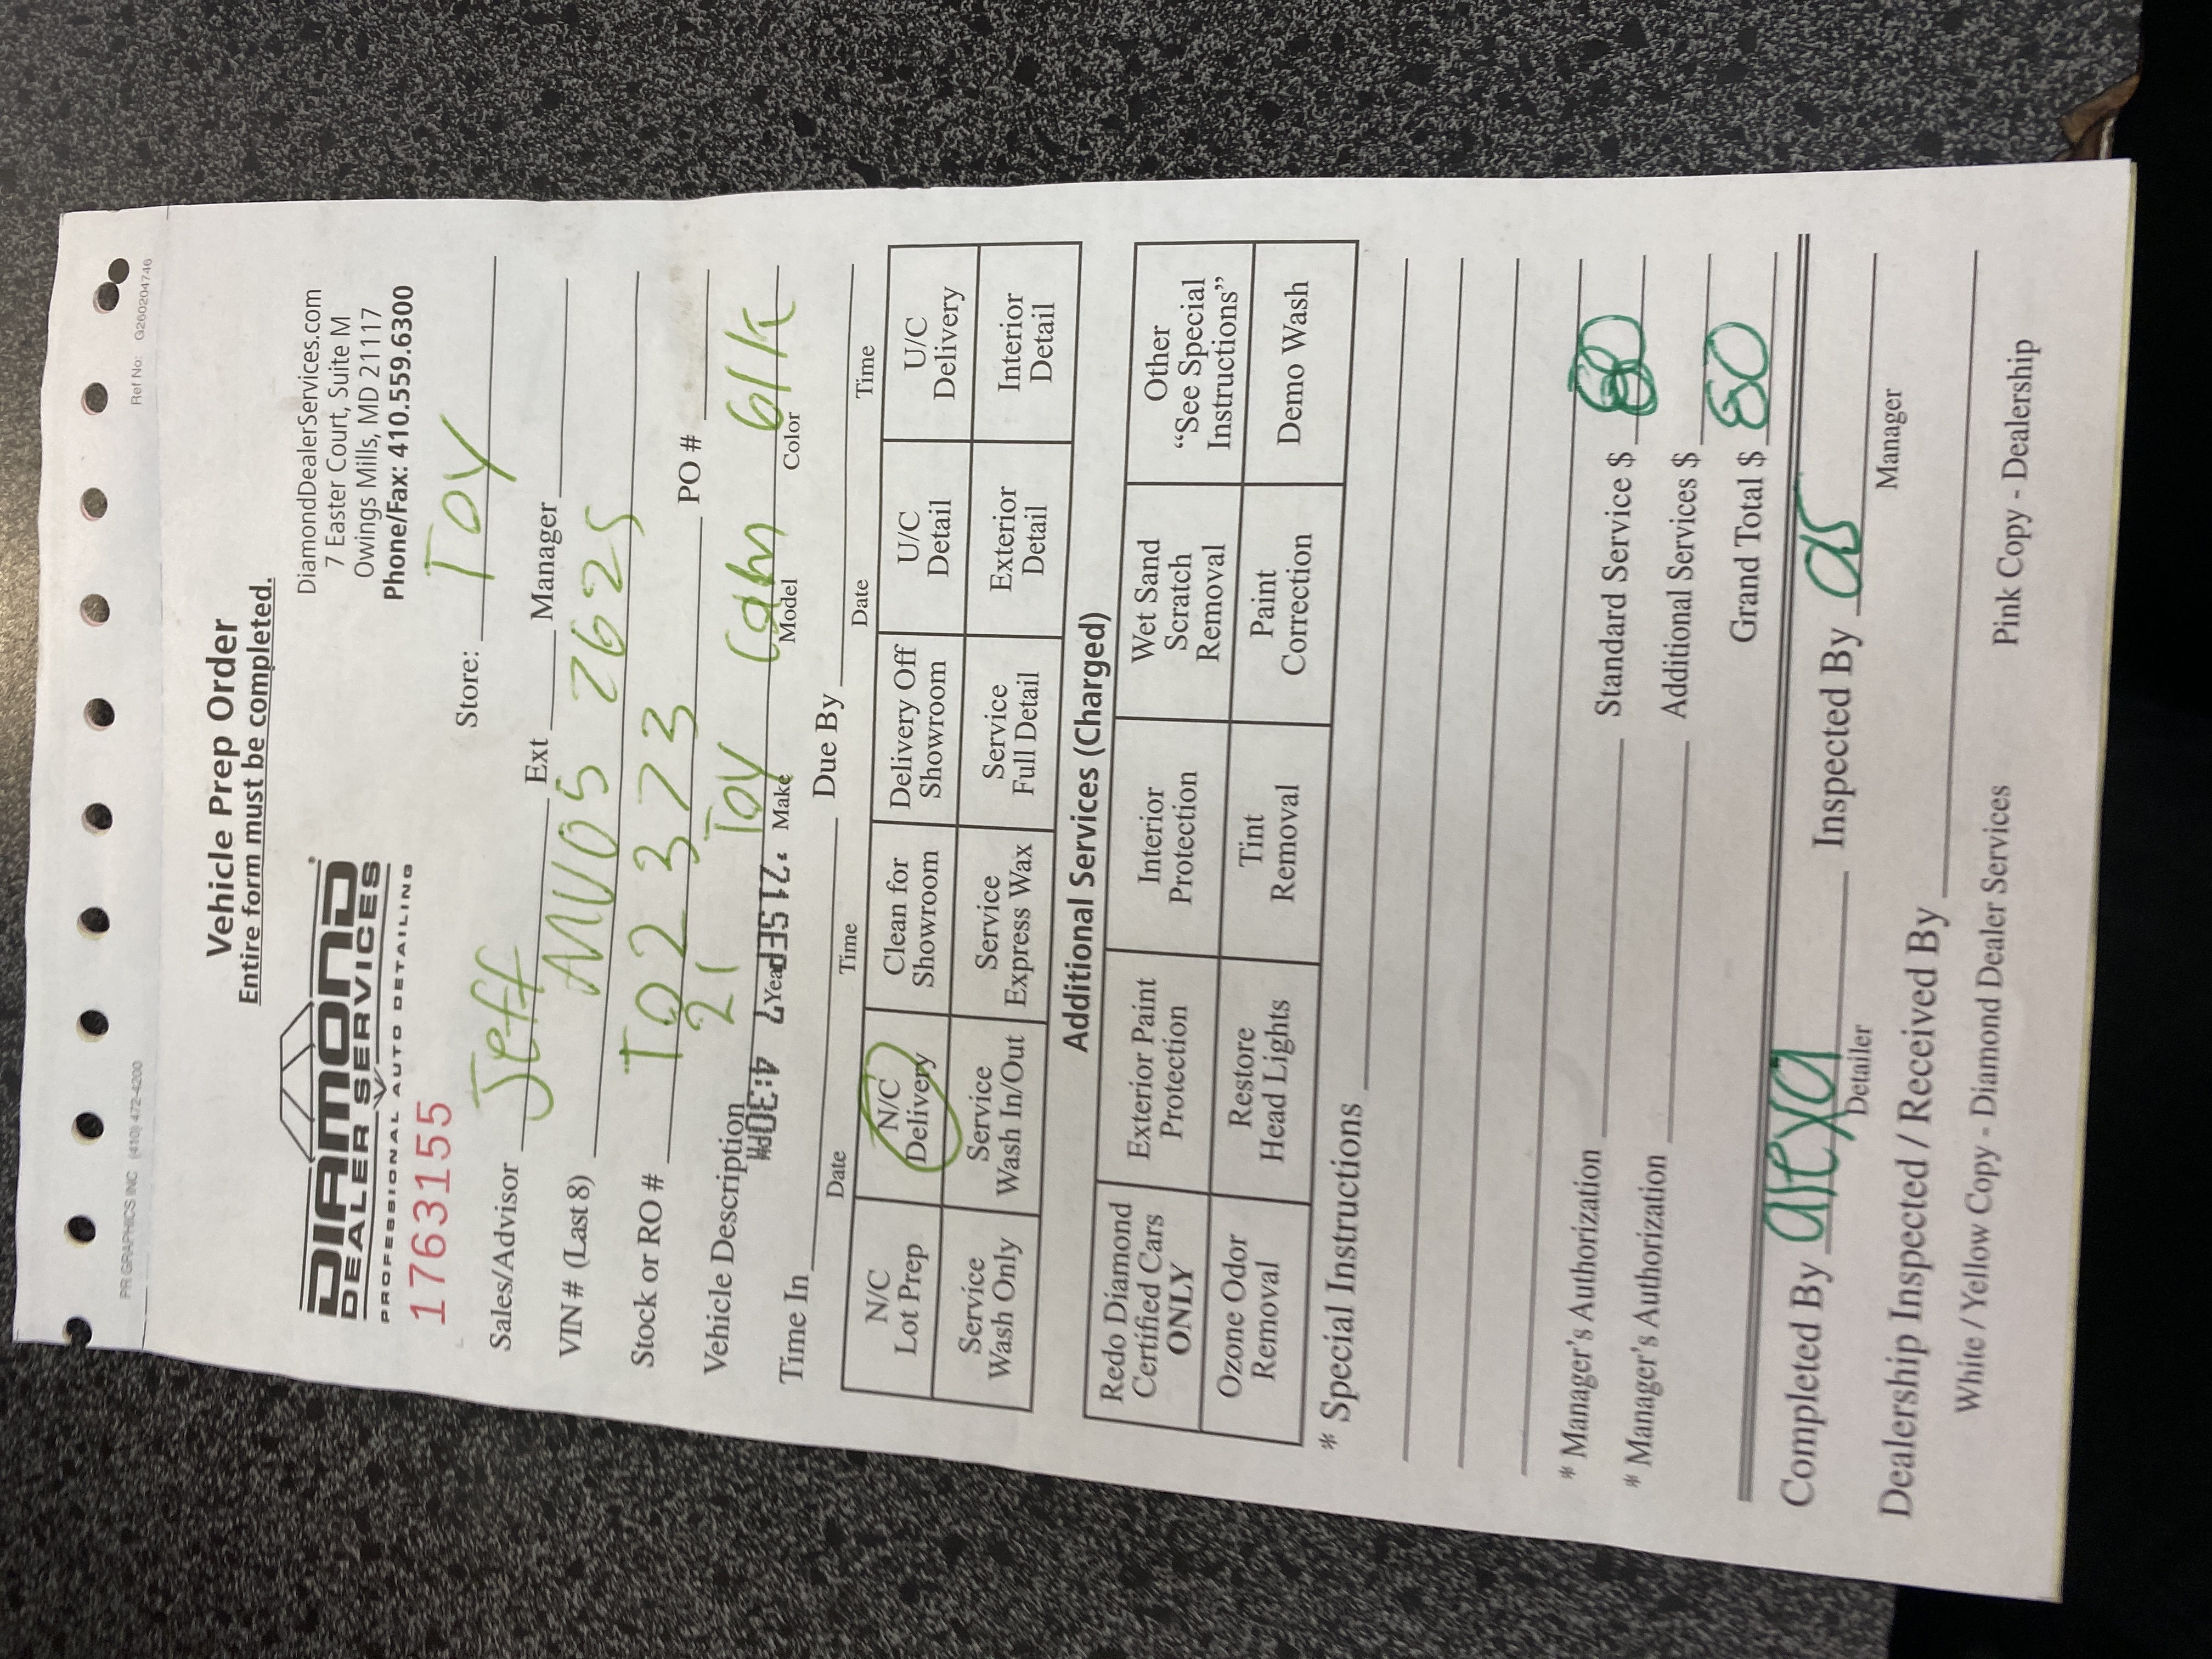 PR GRAPHICS INC (410) 472-4200 Ref No: G260204746
Vehicle Prep Order
Entire form must be completed.
DIAMOND
DEALER SERVICES
PROFESSIONAL AUTO DETAILING
DiamondDealerServices.com
7 Easter Court, Suite M
Owings Mills, MD 21117
Phone/Fax: 410.559.6300
1763155
Store: Toy
Sales/Advisor Jeff Ext Manager
VIN # (Last 8) MU052625
Stock or RO # T02373 PO #
Vehicle Description 21 Toy Cam blk
Year Make Model Color
'21SEP 4:30PM
Time In Due By
Date Time Date Time
N/C Lot Prep N/C Delivery Clean for Showroom Delivery Off Showroom U/C Detail U/C Delivery
Service Wash Only Service Wash In/Out Service Express Wax Service Full Detail Exterior Detail Interior Detail
Additional Services (Charged)
Redo Diamond Certified Cars ONLY Exterior Paint Protection Interior Protection Wet Sand Scratch Removal Other "See Special Instructions"
Ozone Odor Removal Restore Head Lights Tint Removal Paint Correction Demo Wash
* Special Instructions
* Manager's Authorization Standard Service $ 80
* Manager's Authorization Additional Services $
Grand Total $ 80
Completed By alexa Inspected By
Detailer Manager
Dealership Inspected / Received By
White / Yellow Copy - Diamond Dealer Services Pink Copy - Dealership